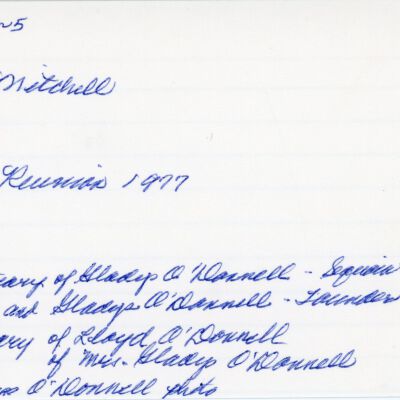 ~5
Mitchell
Reunion 1977
tary of Gladys O'Donnell - Sequoia
and Gladys O'Donnell - Founders
ary of Lloyd O'Donnell
of Mrs. Gladys O'Donnell
O'Donnell photo